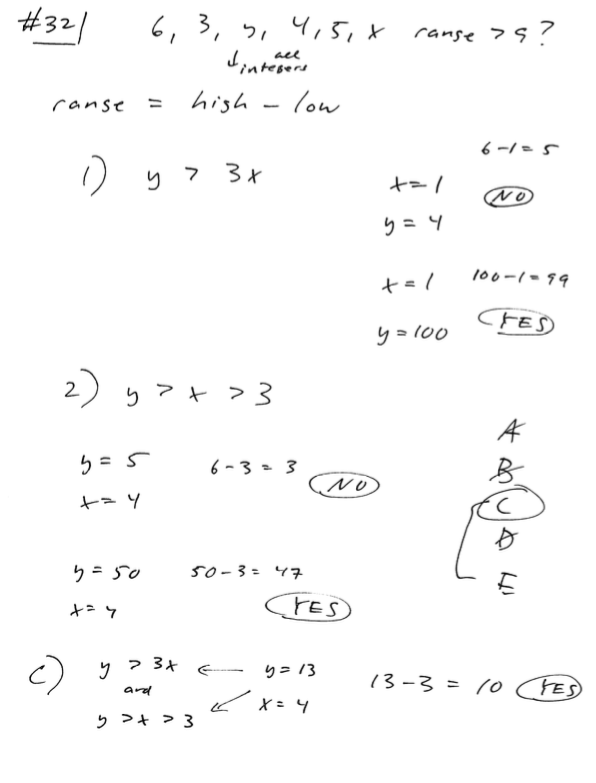 #32/ 6, 3, y, 4, 5, x range > 9?
↓ all integers
range = high - low
1) y > 3x
x = 1 6 - 1 = 5
y = 4 NO
x = 1 100 - 1 = 99
y = 100 YES
2) y > x > 3
y = 5 6 - 3 = 3 NO
x = 4
y = 50 50 - 3 = 47
x = 4 YES
A
B
C
D
E
C) y > 3x ← y = 13 13 - 3 = 10 YES
and
y > x > 3 ↙ x = 4